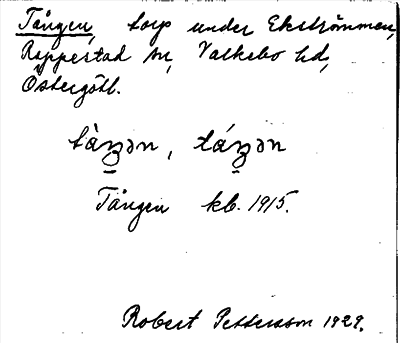 Tången, torp under Ekströmmen,
Rappestad sn, Valkebo hd,
Östergötl.
tàŋən, táŋən
Tången kb. 1915.
Robert Pettersson 1929.